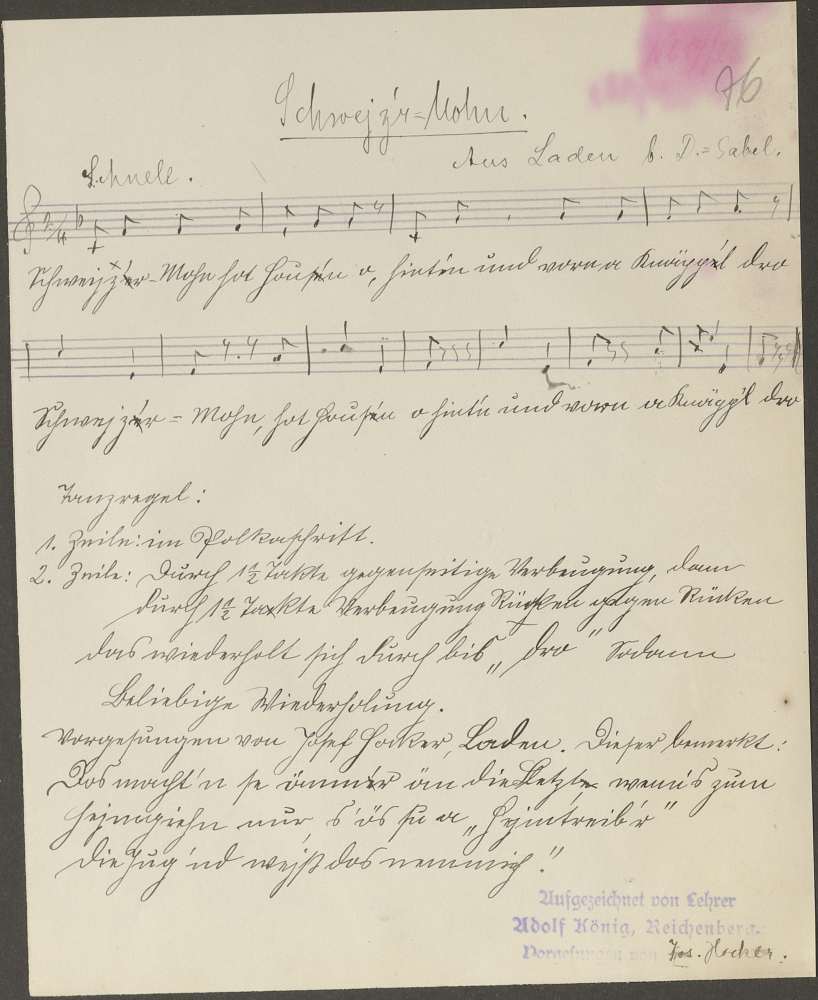 76
Schwejz'r=Mohn.
Aus Laden b. D.=Gabel.
Schnell.
2/4
Schwejz'r-Mohn hot Housen o, hint'n und vorn a Knäpp'l dro
Schwejz'r = Mohn, hot Housen o hint'n und vorn a Knäpp'l dro
Tanzregel:
1. Zeile: im Polkaschritt.
2. Zeile: Durch 1 1/2 Takte gegenseitige Verbeugung, dann
durch 1 1/2 Takte Verbeugung Rücken gegen Rücken
das wiederholt sich durch bis „dro" Sodann
Beliebige Wiederholung.
Vorgesungen von Josef Hocker, Laden. Dieser bemerkt:
Dos macht'n se ümmer än die Letzte, wenn's zum
Hejmgiehn nur, s'ös su a „Hejmtreib'r"
die Jug'nd wejß dos nemmich."
Aufgezeichnet von Lehrer
Adolf König, Reichenberg.
Vorgesungen von Jos. Hocker.